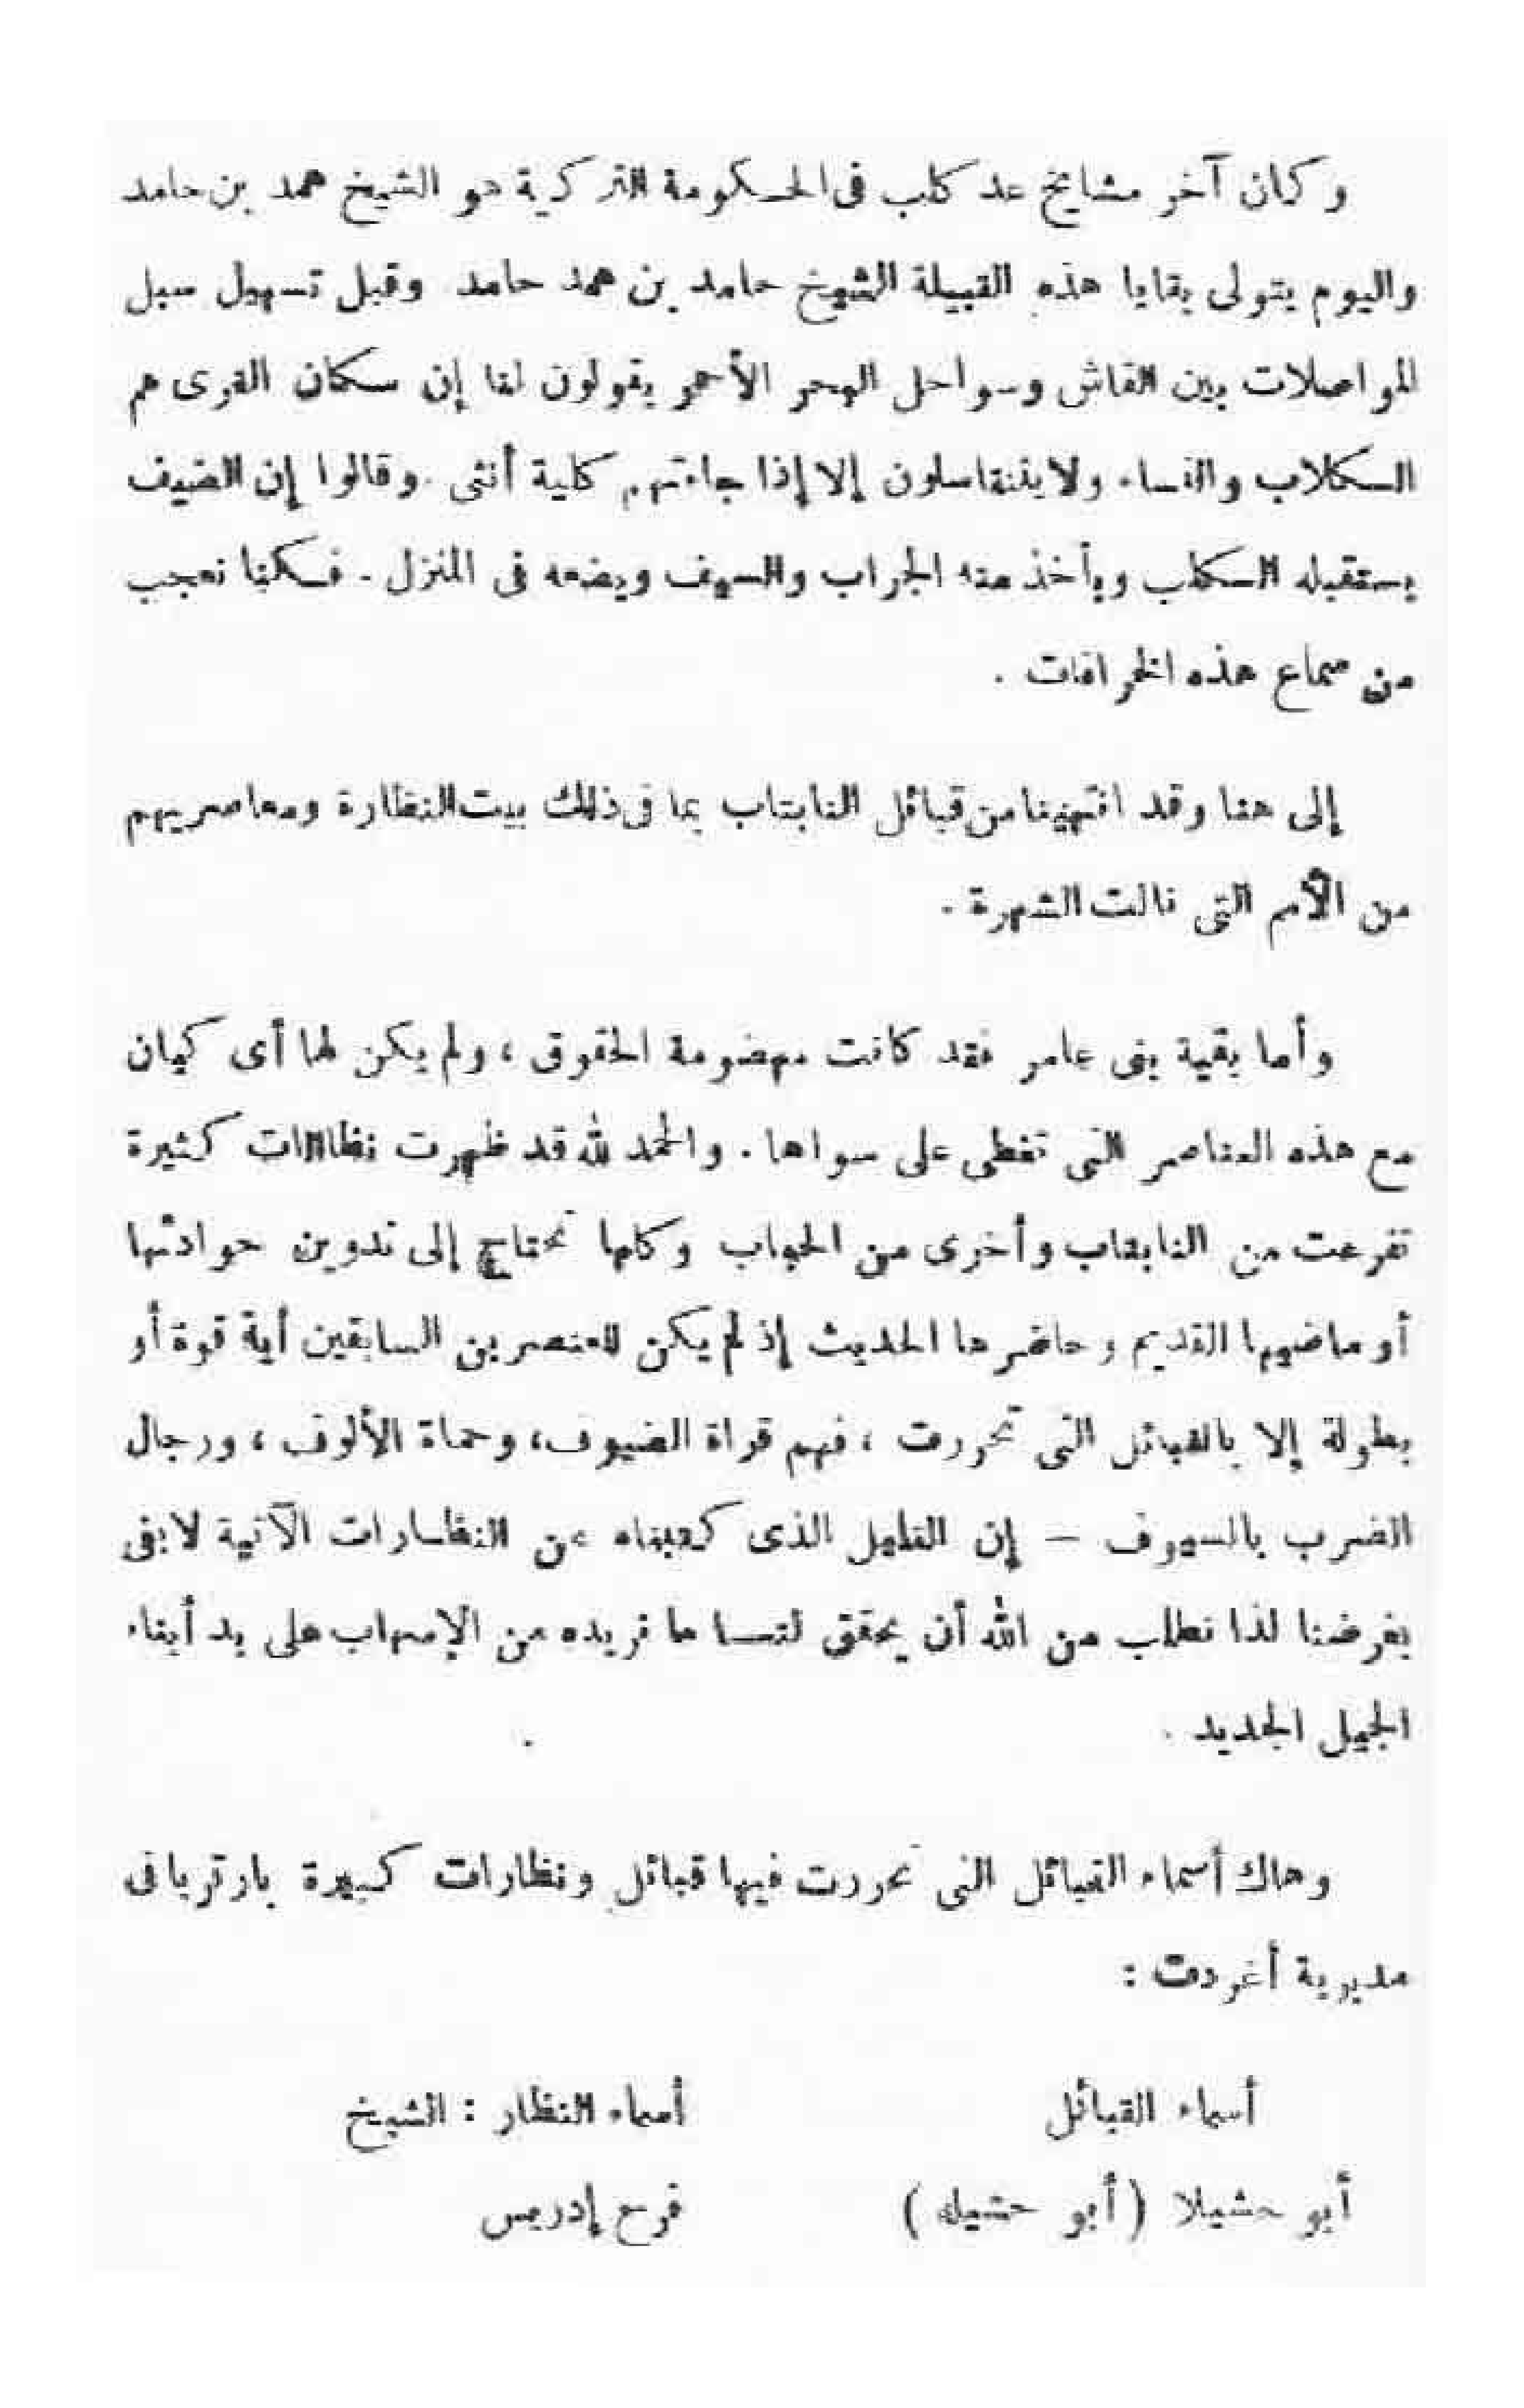 وكان آخر مشايخ عد كلب فى الحكومة التركية هو الشيخ همد بن حامد
واليوم يتولى بقايا هذه القبيلة الشيخ حامد بن همد حامد وقبل تسهيل سبل
المواصلات بين القاش وسواحل البحر الأحمر يقولون لنا إن سكان القرى هم
الكلاب والنساء ولا يتناسلون إلا إذا جاءتهم كلبة أنثى . وقالوا إن الضيف
يستقبله الكلب ويأخذ منه الجراب والسيف ويضعه فى المنزل . فكنا نعجب
من سماع هذه الخرافات .
إلى هنا وقد انتهينا من قبائل النابتاب بما فى ذلك بيت النظارة ومعاصريهم
من الأمم التى نالت الشهرة .
وأما بقية بنى عامر فقد كانت مهضومة الحقوق ، ولم يكن لها أى كيان
مع هذه العناصر التى تغطى على سواها . والحمد لله قد ظهرت نظارات كثيرة
تفرعت من النابتاب وأخرى من الحباب وكلها تحتاج إلى تدوين حوادثها
أو ماضيها القديم وحاضرها الحديث إذ لم يكن للعنصرين السابقين أية قوة أو
بطولة إلا بالقبائل التى تحررت ، فهم قراة الضيوف ، وحماة الألوف ، ورجال
الضرب بالسيوف – إن القليل الذى كتبناه عن النظارات الآتية لا يفى
بغرضنا لذا نطلب من الله أن يحقق لنا ما نريده من الإسهاب على يد أبناء
الجيل الجديد .
وهاك أسماء القبائل التى تحررت فيها قبائل ونظارات كبيرة بارتريا فى
مديرية أغردت :
أسماء القبائل أسماء النظار : الشيخ
أبو حشيلا ( أبو حشيله ) فرح إدريس